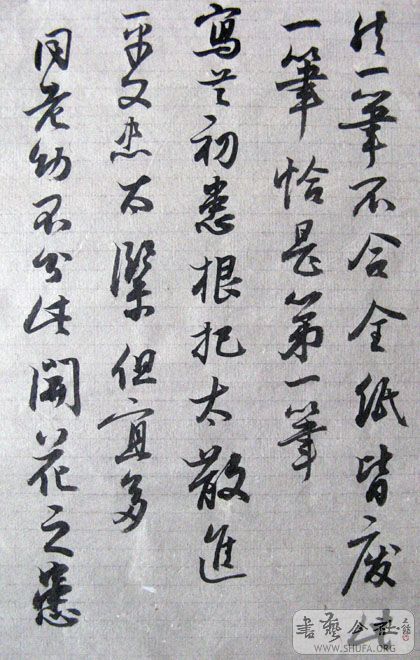 一筆不合全紙皆廢
一筆恰是第一筆
寫初患根把太散進
又患太但宜多
同老幼不分此開花之患
書藝公社
WWW.SHUFA.ORG